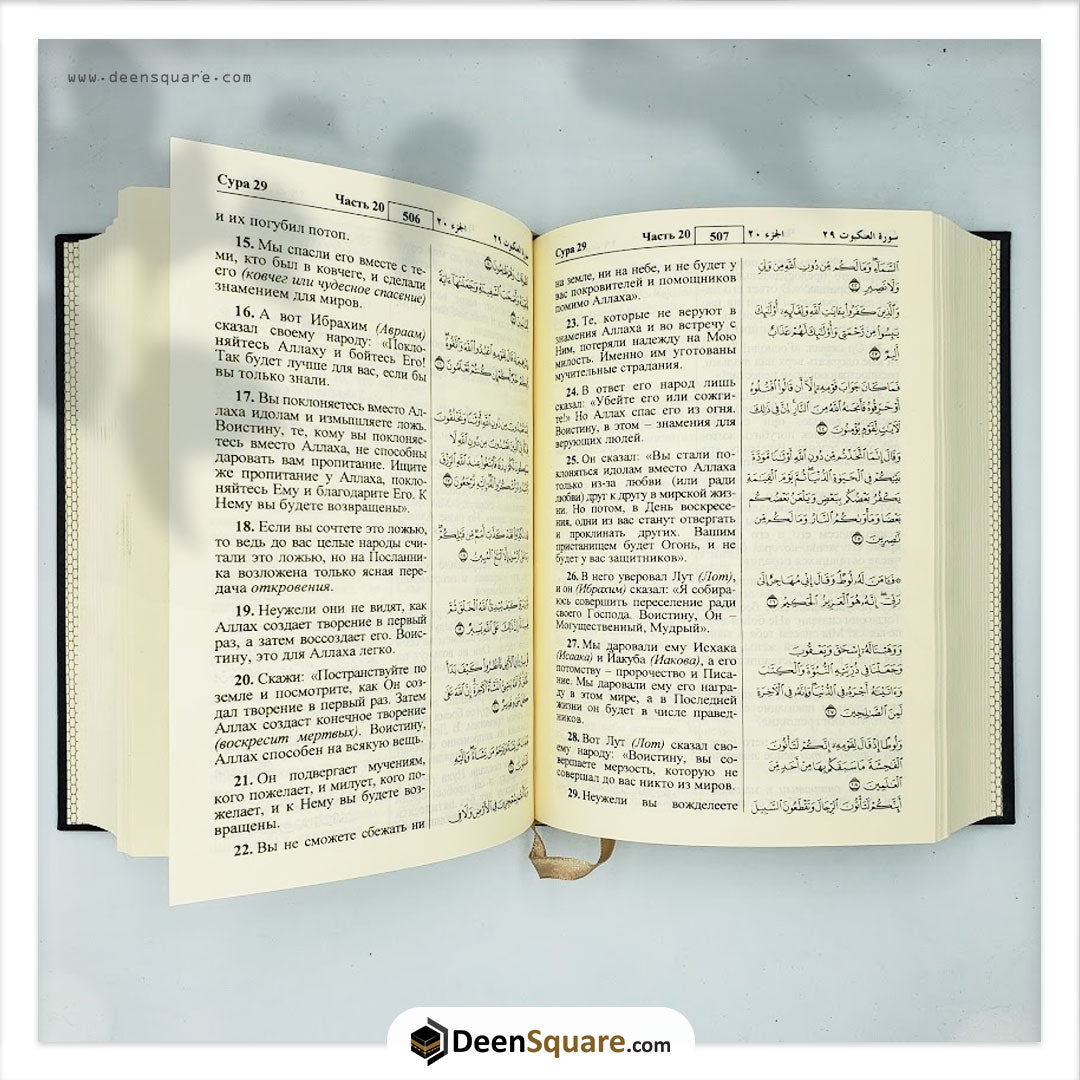 www.deensquare.com
Сура 29
Часть 20
506
الجزء ٢٠
и их погубил потоп.
15. Мы спасли его вместе с те-
ми, кто был в ковчеге, и сделали
его (ковчег или чудесное спасение)
знамением для миров.
16. А вот Ибрахим (Авраам)
сказал своему народу: «Покло-
няйтесь Аллаху и бойтесь Его!
Так будет лучше для вас, если бы
вы только знали.
17. Вы поклоняетесь вместо Ал-
лаха идолам и измышляете ложь.
Воистину, те, кому вы поклоняе-
тесь вместо Аллаха, не способны
даровать вам пропитание. Ищите
же пропитание у Аллаха, покло-
няйтесь Ему и благодарите Его. К
Нему вы будете возвращены».
18. Если вы сочтете это ложью,
то ведь до вас целые народы счи-
тали это ложью, но на Посланни-
ка возложена только ясная пере-
дача откровения.
19. Неужели они не видят, как
Аллах создает творение в первый
раз, а затем воссоздает его. Воис-
тину, это для Аллаха легко.
20. Скажи: «Постранствуйте по
земле и посмотрите, как Он соз-
дал творение в первый раз. Затем
Аллах создаст конечное творение
(воскресит мертвых). Воистину,
Аллах способен на всякую вещь.
21. Он подвергает мучениям,
кого пожелает, и милует, кого по-
желает, и к Нему вы будете воз-
вращены.
22. Вы не сможете сбежать ни
Сура 29
Часть 20
507
الجزء ٢٠
سورة العنكبوت ٢٩
на земле, ни на небе, и не будет у
вас покровителей и помощников
помимо Аллаха».
23. Те, которые не веруют в
знамения Аллаха и во встречу с
Ним, потеряли надежду на Мою
милость. Именно им уготованы
мучительные страдания.
24. В ответ его народ лишь
сказал: «Убейте его или сожги-
те!» Но Аллах спас его из огня.
Воистину, в этом – знамения для
верующих людей.
25. Он сказал: «Вы стали по-
клоняться идолам вместо Аллаха
только из-за любви (или ради
любви) друг к другу в мирской жиз-
ни. Но потом, в День воскресе-
ния, одни из вас станут отвергать
и проклинать других. Вашим
пристанищем будет Огонь, и не
будет у вас защитников».
26. В него уверовал Лут (Лот),
и он (Ибрахим) сказал: «Я собира-
юсь совершить переселение ради
своего Господа. Воистину, Он –
Могущественный, Мудрый».
27. Мы даровали ему Исхака
(Исаака) и Йакуба (Иакова), а его
потомству – пророчество и Писа-
ние. Мы даровали ему его награ-
ду в этом мире, а в Последней
жизни он будет в числе правед-
ников.
28. Вот Лут (Лот) сказал сво-
ему народу: «Воистину, вы со-
вершаете мерзость, которую не
совершал до вас никто из миров.
29. Неужели вы вожделеете
ٱلسَّمَآءِ وَمَا لَكُم مِّن دُونِ ٱللَّهِ مِن وَلِيٍّ
وَلَا نَصِيرٍ ٢٢
وَٱلَّذِينَ كَفَرُوا۟ بِـَٔايَٰتِ ٱللَّهِ وَلِقَآئِهِۦٓ أُو۟لَٰٓئِكَ
يَئِسُوا۟ مِن رَّحْمَتِى وَأُو۟لَٰٓئِكَ لَهُمْ عَذَابٌ
أَلِيمٌ ٢٣
فَمَا كَانَ جَوَابَ قَوْمِهِۦٓ إِلَّآ أَن قَالُوا۟ ٱقْتُلُوهُ
أَوْ حَرِّقُوهُ فَأَنجَىٰهُ ٱللَّهُ مِنَ ٱلنَّارِ إِنَّ فِى ذَٰلِكَ
لَـَٔايَٰتٍ لِّقَوْمٍ يُؤْمِنُونَ ٢٤
وَقَالَ إِنَّمَا ٱتَّخَذْتُم مِّن دُونِ ٱللَّهِ أَوْثَٰنًا مَّوَدَّةَ
بَيْنِكُمْ فِى ٱلْحَيَوٰةِ ٱلدُّنْيَا ثُمَّ يَوْمَ ٱلْقِيَٰمَةِ
يَكْفُرُ بَعْضُكُم بِبَعْضٍ وَيَلْعَنُ بَعْضُكُم
بَعْضًا وَمَأْوَىٰكُمُ ٱلنَّارُ وَمَا لَكُم مِّن
نَّٰصِرِينَ ٢٥
فَـَٔامَنَ لَهُۥ لُوطٌ وَقَالَ إِنِّى مُهَاجِرٌ إِلَىٰ
رَبِّىٓ إِنَّهُۥ هُوَ ٱلْعَزِيزُ ٱلْحَكِيمُ ٢٦
وَوَهَبْنَا لَهُۥٓ إِسْحَٰقَ وَيَعْقُوبَ
وَجَعَلْنَا فِى ذُرِّيَّتِهِ ٱلنُّبُوَّةَ وَٱلْكِتَٰبَ
وَءَاتَيْنَٰهُ أَجْرَهُۥ فِى ٱلدُّنْيَا وَإِنَّهُۥ فِى ٱلْـَٔاخِرَةِ
لَمِنَ ٱلصَّٰلِحِينَ ٢٧
وَلُوطًا إِذْ قَالَ لِقَوْمِهِۦٓ إِنَّكُمْ لَتَأْتُونَ
ٱلْفَٰحِشَةَ مَا سَبَقَكُم بِهَا مِنْ أَحَدٍ مِّنَ
ٱلْعَٰلَمِينَ ٢٨
أَئِنَّكُمْ لَتَأْتُونَ ٱلرِّجَالَ وَتَقْطَعُونَ ٱلسَّبِيلَ
DeenSquare.com